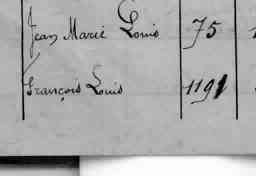 Jean Marie Louis 75
François Louis 1191